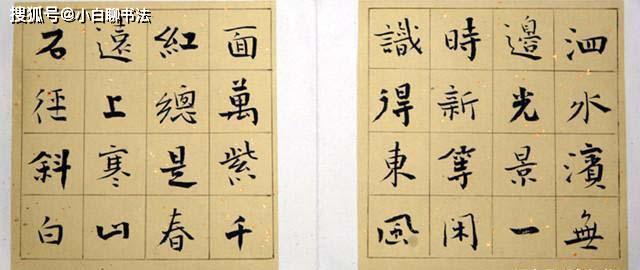 搜狐号@小白聊书法
泗水濱無
邊光景一
時新等闲
識得東風
面萬紫千
紅總是春
遠上寒山
石徑斜白